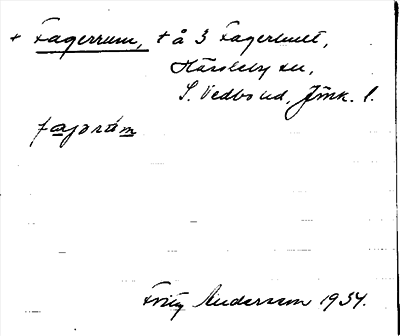 + Fagerrum, + å 3 Fagerhult,
Hässleby sn,
S. Vedbo hd, Jönk. l.
fajərúm
Fritz Anderson 1934.